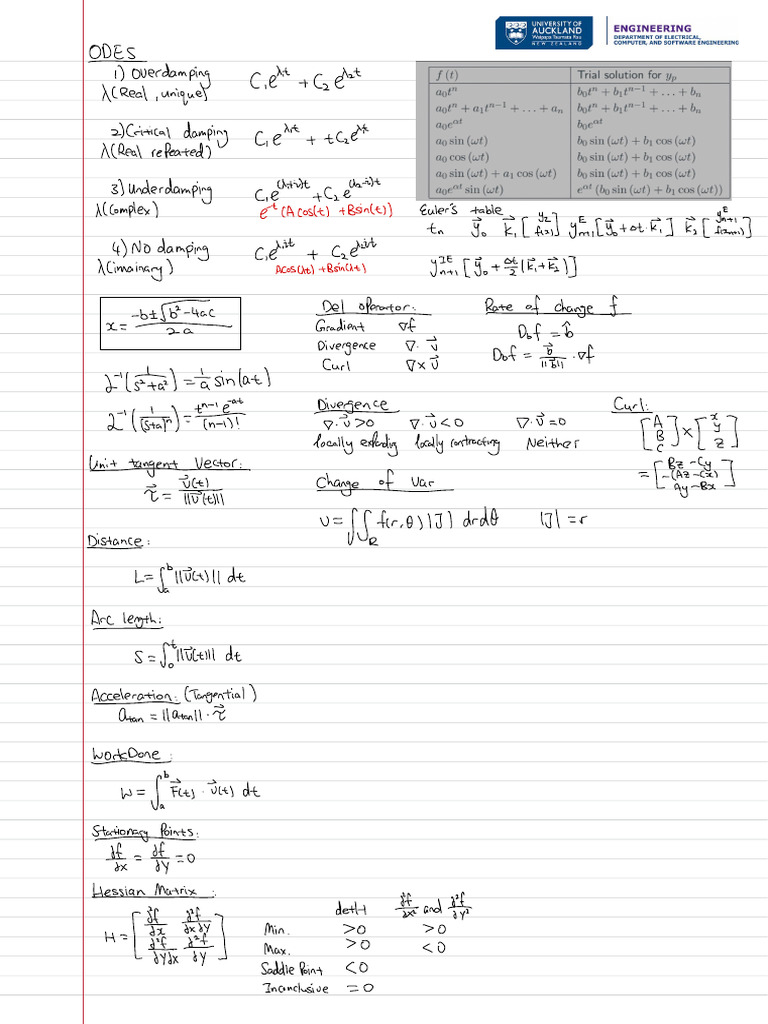 UNIVERSITY OF AUCKLAND
Waipapa Taumata Rau
NEW ZEALAND
ENGINEERING
DEPARTMENT OF ELECTRICAL, COMPUTER, AND SOFTWARE ENGINEERING
ODES
1) Overdamping C₁e^λt + C₂e^λ₂t
λ(Real, unique)
2) Critical damping C₁e^λt + tC₂e^λt
λ(Real repeated)
3) Underdamping
λ(Complex)
e^-t (A cos(t) + B sin(t))
4) No damping
λ(imainary)
A cos(λt) + B sin(λt)
f (t) Trial solution for y_p
a₀tⁿ b₀tⁿ + b₁tⁿ⁻¹ + … + bₙ
a₀tⁿ + a₁tⁿ⁻¹ + … + aₙ b₀tⁿ + b₁tⁿ⁻¹ + … + bₙ
a₀e^αt b₀e^αt
a₀ sin (ωt) b₀ sin (ωt) + b₁ cos (ωt)
a₀ cos (ωt) b₀ sin (ωt) + b₁ cos (ωt)
a₀ sin (ωt) + a₁ cos (ωt) b₀ sin (ωt) + b₁ cos (ωt)
a₀e^αt sin (ωt) e^αt (b₀ sin (ωt) + b₁ cos (ωt))
Euler's table
tₙ y⃗₀ k⃗₁ [y⃗₀ + Δt · k⃗₁] k⃗₂
y^IE_n+1 [y⃗₀ + Δt/2 (k⃗₁ + k⃗₂)]
x = (-b ± √(b² - 4ac)) / 2a
Del operator:
Gradient ∇f
Divergence ∇ · v⃗
Curl ∇ × v⃗
Rate of change f
D_b f = b̂
D_b f = b⃗/||b⃗|| · ∇f
L⁻¹(1/(s² + a²)) = 1/a sin(at)
L⁻¹(1/(s+a)ⁿ) = tⁿ⁻¹ e^-at / (n-1)!
Divergence
∇ · v⃗ > 0 ∇ · v⃗ < 0 ∇ · v⃗ = 0
locally expending locally contracting Neither
Curl:
[A B C] × [x y z]
= [Bz - Cy -(Az - Cx) Ay - Bx]
Unit tangent Vector:
τ⃗ = v⃗(t) / ||v⃗(t)||
Change of Var
v = ∫∫_R f(r, θ) |J| dr dθ |J| = r
Distance:
L = ∫_a^b ||v⃗(t)|| dt
Arc length:
S = ∫_0^t ||v⃗(t)|| dt
Acceleration: (Tangential)
a_tan = ||a_tan|| · τ⃗
Work Done:
W = ∫_a^b F⃗(t) · v⃗(t) dt
Stationary Points:
∂f/∂x = ∂f/∂y = 0
Hessian Matrix:
H = [∂²f/∂x ∂²f/∂x∂y
∂²f/∂y∂x ∂²f/∂y]
detH ∂²f/∂x² and ∂²f/∂y²
Min. >0 >0
Max. >0 <0
Saddle Point <0
Inconclusive =0